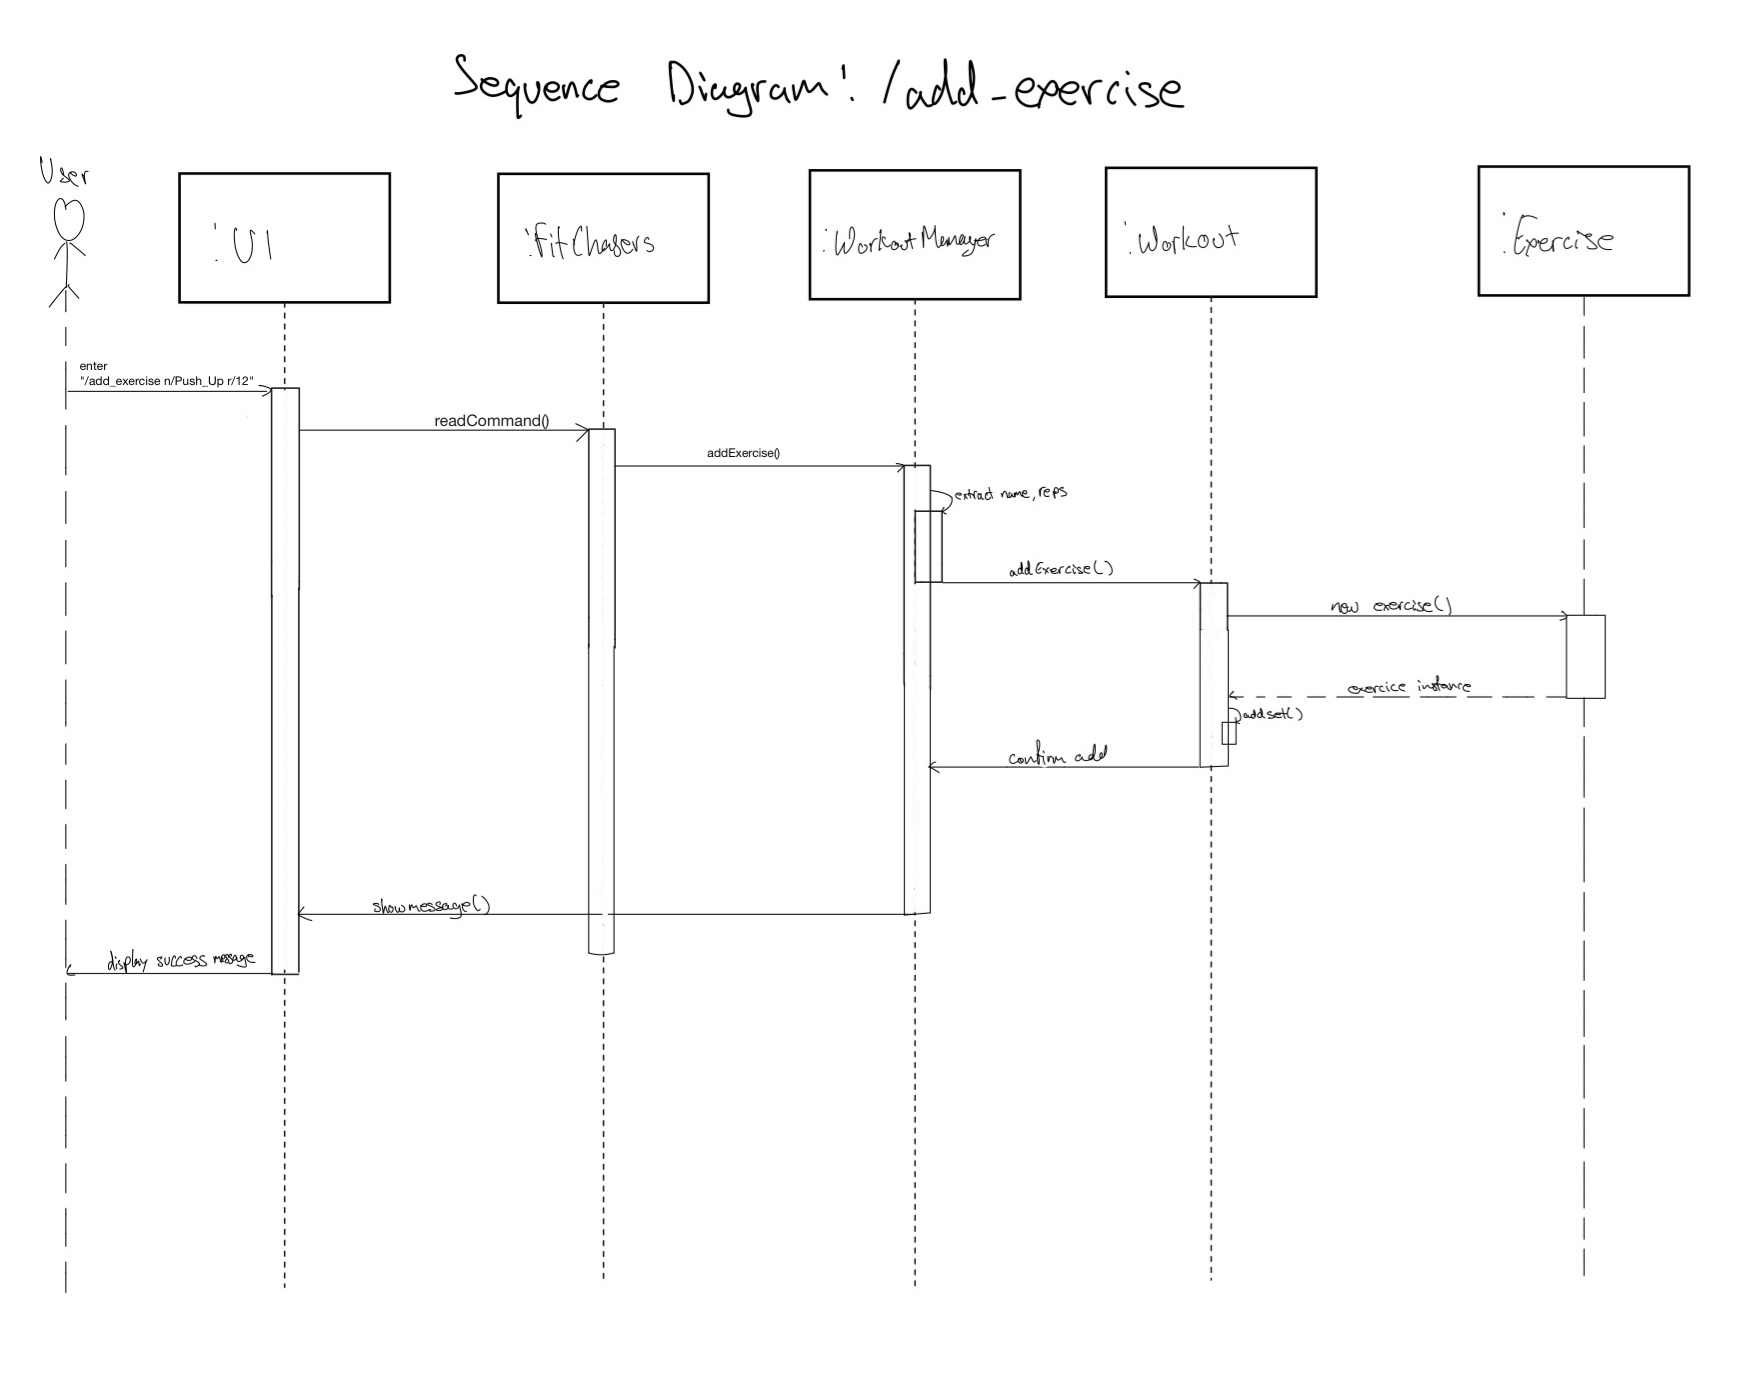 Sequence Diagram: /add_exercise
User
:UI
:FitChasers
:WorkoutManager
:Workout
:Exercise
enter
"/add_exercise n/Push_Up r/12"
readCommand()
addExercise()
extract name, reps
addExercise()
new exercise()
exercice instance
addset()
confirm add
showmessage()
display success message